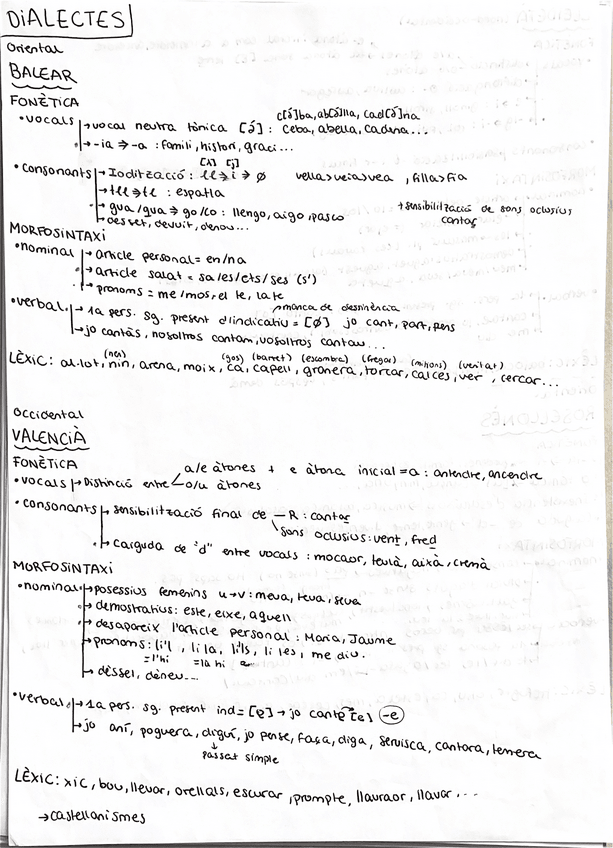 DIALECTES
Oriental
BALEAR
FONÈTICA
c[ə́]ba, ab[ə́]lla, cad[ə́]na
•vocals → vocal neutra tònica [ə́] : Ceba, abella, cadena...
→ -ia ⇒ -a : famili, histori, graci...
[ʎ] [j]
•consonants → Iodització : ll ⇒ i ⇒ ø vella>veia>vea , filla>fia
→ tll ⇒ tl : espatla
→ gua/qua ⇒ go/co : llengo, aigo, pasco + sensibilització de sons oclusius
→ desset, devuit, denou... cantaç
MORFOSINTAXI
•nominal → article personal = en/na
→ article salat = sa/es/ets/ses (s')
→ pronoms = me/mos, el te, la te
→ manca de desinència
•verbal → 1a pers. sg. present d'indicatiu = [ø] jo cant, part, pens
→ jo cantàs, nosoltros cantam, vosoltros cantau...
(nen) (gos) (barret) (escombra) (fregar) (mitjons) (veritat)
LÈXIC: al·lot, nin, arena, moix, ca, capell, granera, torcar, calces, ver , cercar...
Occidental
VALENCIÀ
FONÈTICA
a/e àtones + e àtona inicial = a : antendre, ancendre
•vocals → Distinció entre
o/u àtones
•consonants → sensibilització final de – R : cantar
sons oclusius: vent, fred
→ Caiguda de "d" entre vocals : mocaor, teulà, aixà, cremà
MORFOSINTAXI
•nominal → posessius femenins u→v : meva, teva, seva
→ demostratius: este, eixe, aquell
→ desapareix l'article personal : Maria, Jaume
→ pronoms : li'l , li la, li'ls, li les, me diu.
=l'hi =la hi
→ dèsset, dèneu...
•verbal → 1a pers. sg. present ind = [e] → jo cante [e] -e
→ jo aní, poguera, diguí, jo pense, faça, diga, servisca, cantara, temera
↓
passat simple
LÈXIC: xic, bou, llevor, orellals, escurar , prompte, llauraor, llavar ...
→ castellanismes